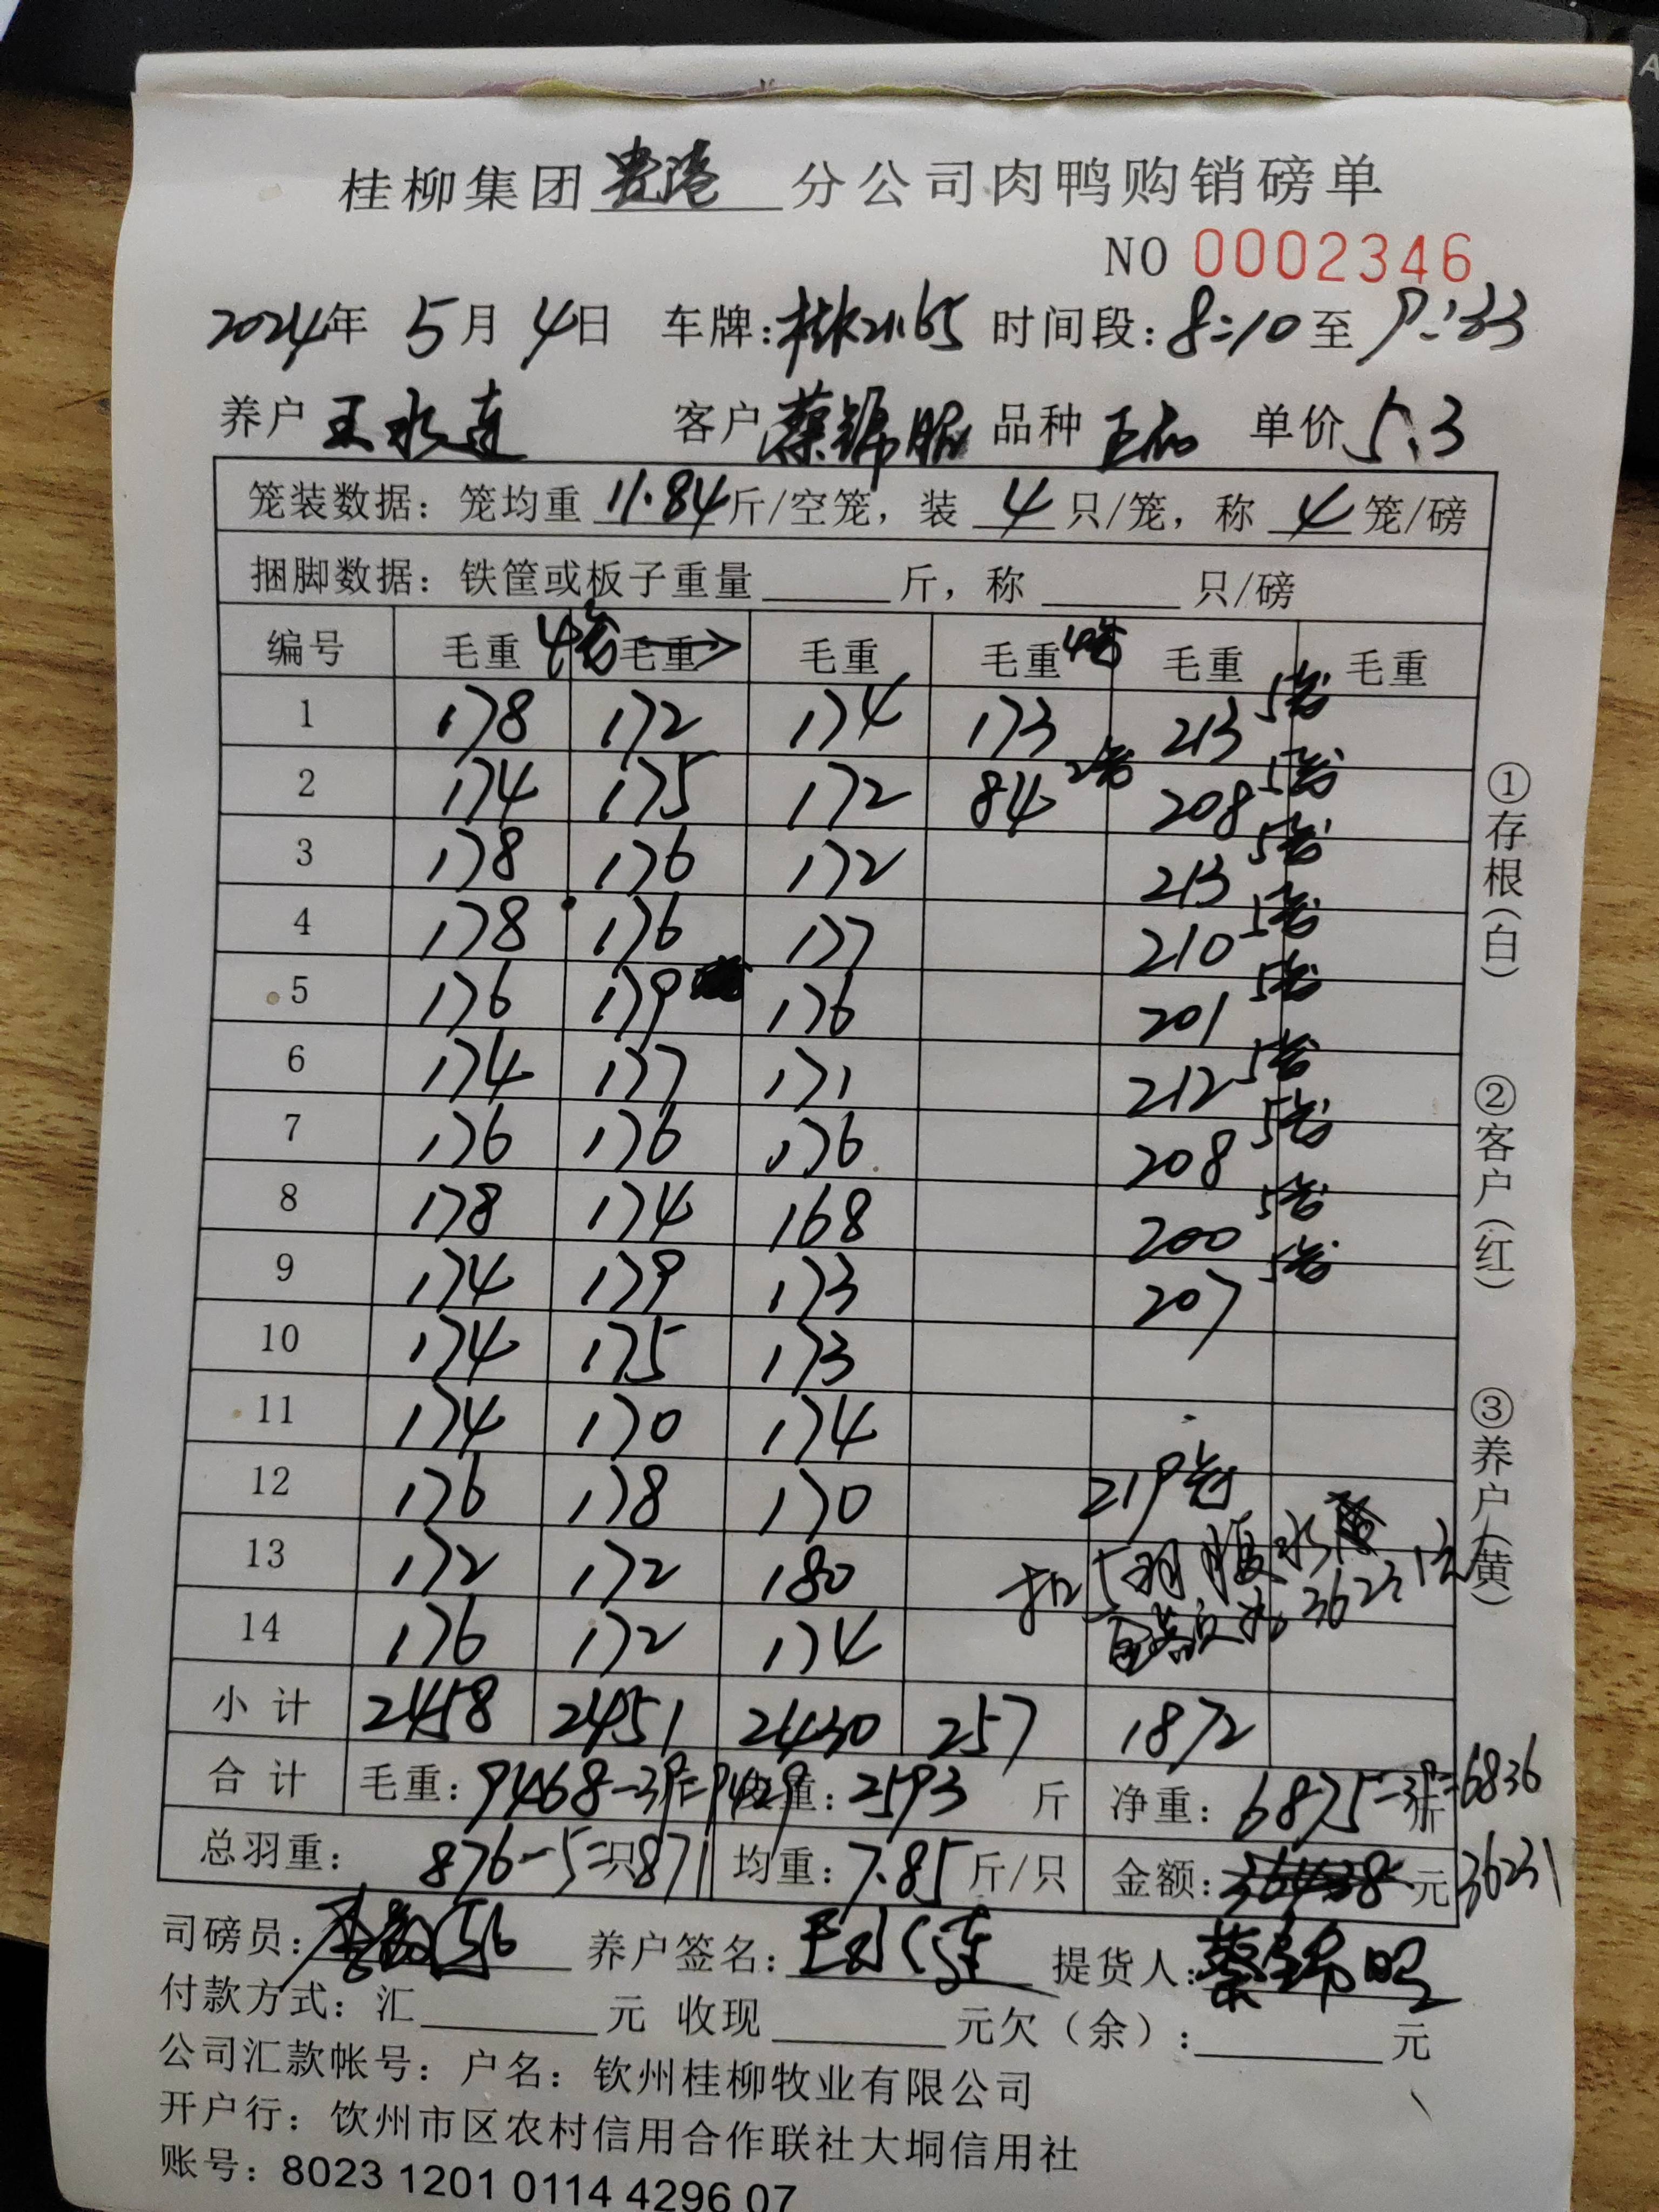 桂柳集团 贵港 分公司肉鸭购销磅单
NO 0002346
2024年 5月 4日 车牌: 时间段:8:10至9:33
养户 王水连 客户 蔡锦照 品种 正品 单价 5.3
笼装数据: 笼均重 11.84 斤/空笼, 装 4 只/笼, 称 4 笼/磅
捆脚数据: 铁筐或板子重量 斤, 称 只/磅
编号 毛重 4笼 毛重 → 毛重 毛重 4笼 毛重 毛重
1 178 172 174 173 213 5笼
2 174 175 172 84 2笼 208 5笼
3 178 176 172 213 5笼
4 178 176 177 210 5笼
5 176 179 176 201 5笼
6 174 177 171 212 5笼
7 176 176 176 208 5笼
8 178 174 168 200 5笼
9 174 179 173 207 5笼
10 174 175 173
11 174 170 174
12 176 178 170 219笼
13 172 172 180 扣5羽腹水
14 176 172 174 36231元
小计 2458 2451 2430 257 1872
合计 毛重: 9468-39=9429 重: 2593 斤 净重: 6875-39斤=6836
总羽重: 876-5=只871 均重: 7.85 斤/只 金额: 元 36231
司磅员: 养户签名: 王水连 提货人: 蔡锦照
付款方式: 汇 元 收现 元欠(余): 元
公司汇款帐号: 户名: 钦州桂柳牧业有限公司
开户行: 饮州市区农村信用合作联社大垌信用社
账号: 8023 1201 0114 4296 07
①存根(白) ②客户(红) ③养户(黄)